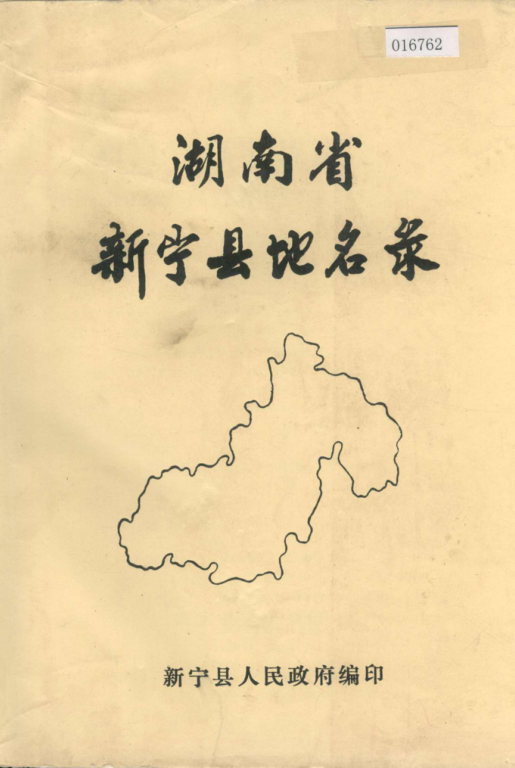 016762
湖南省
新宁县地名录
新宁县人民政府编印